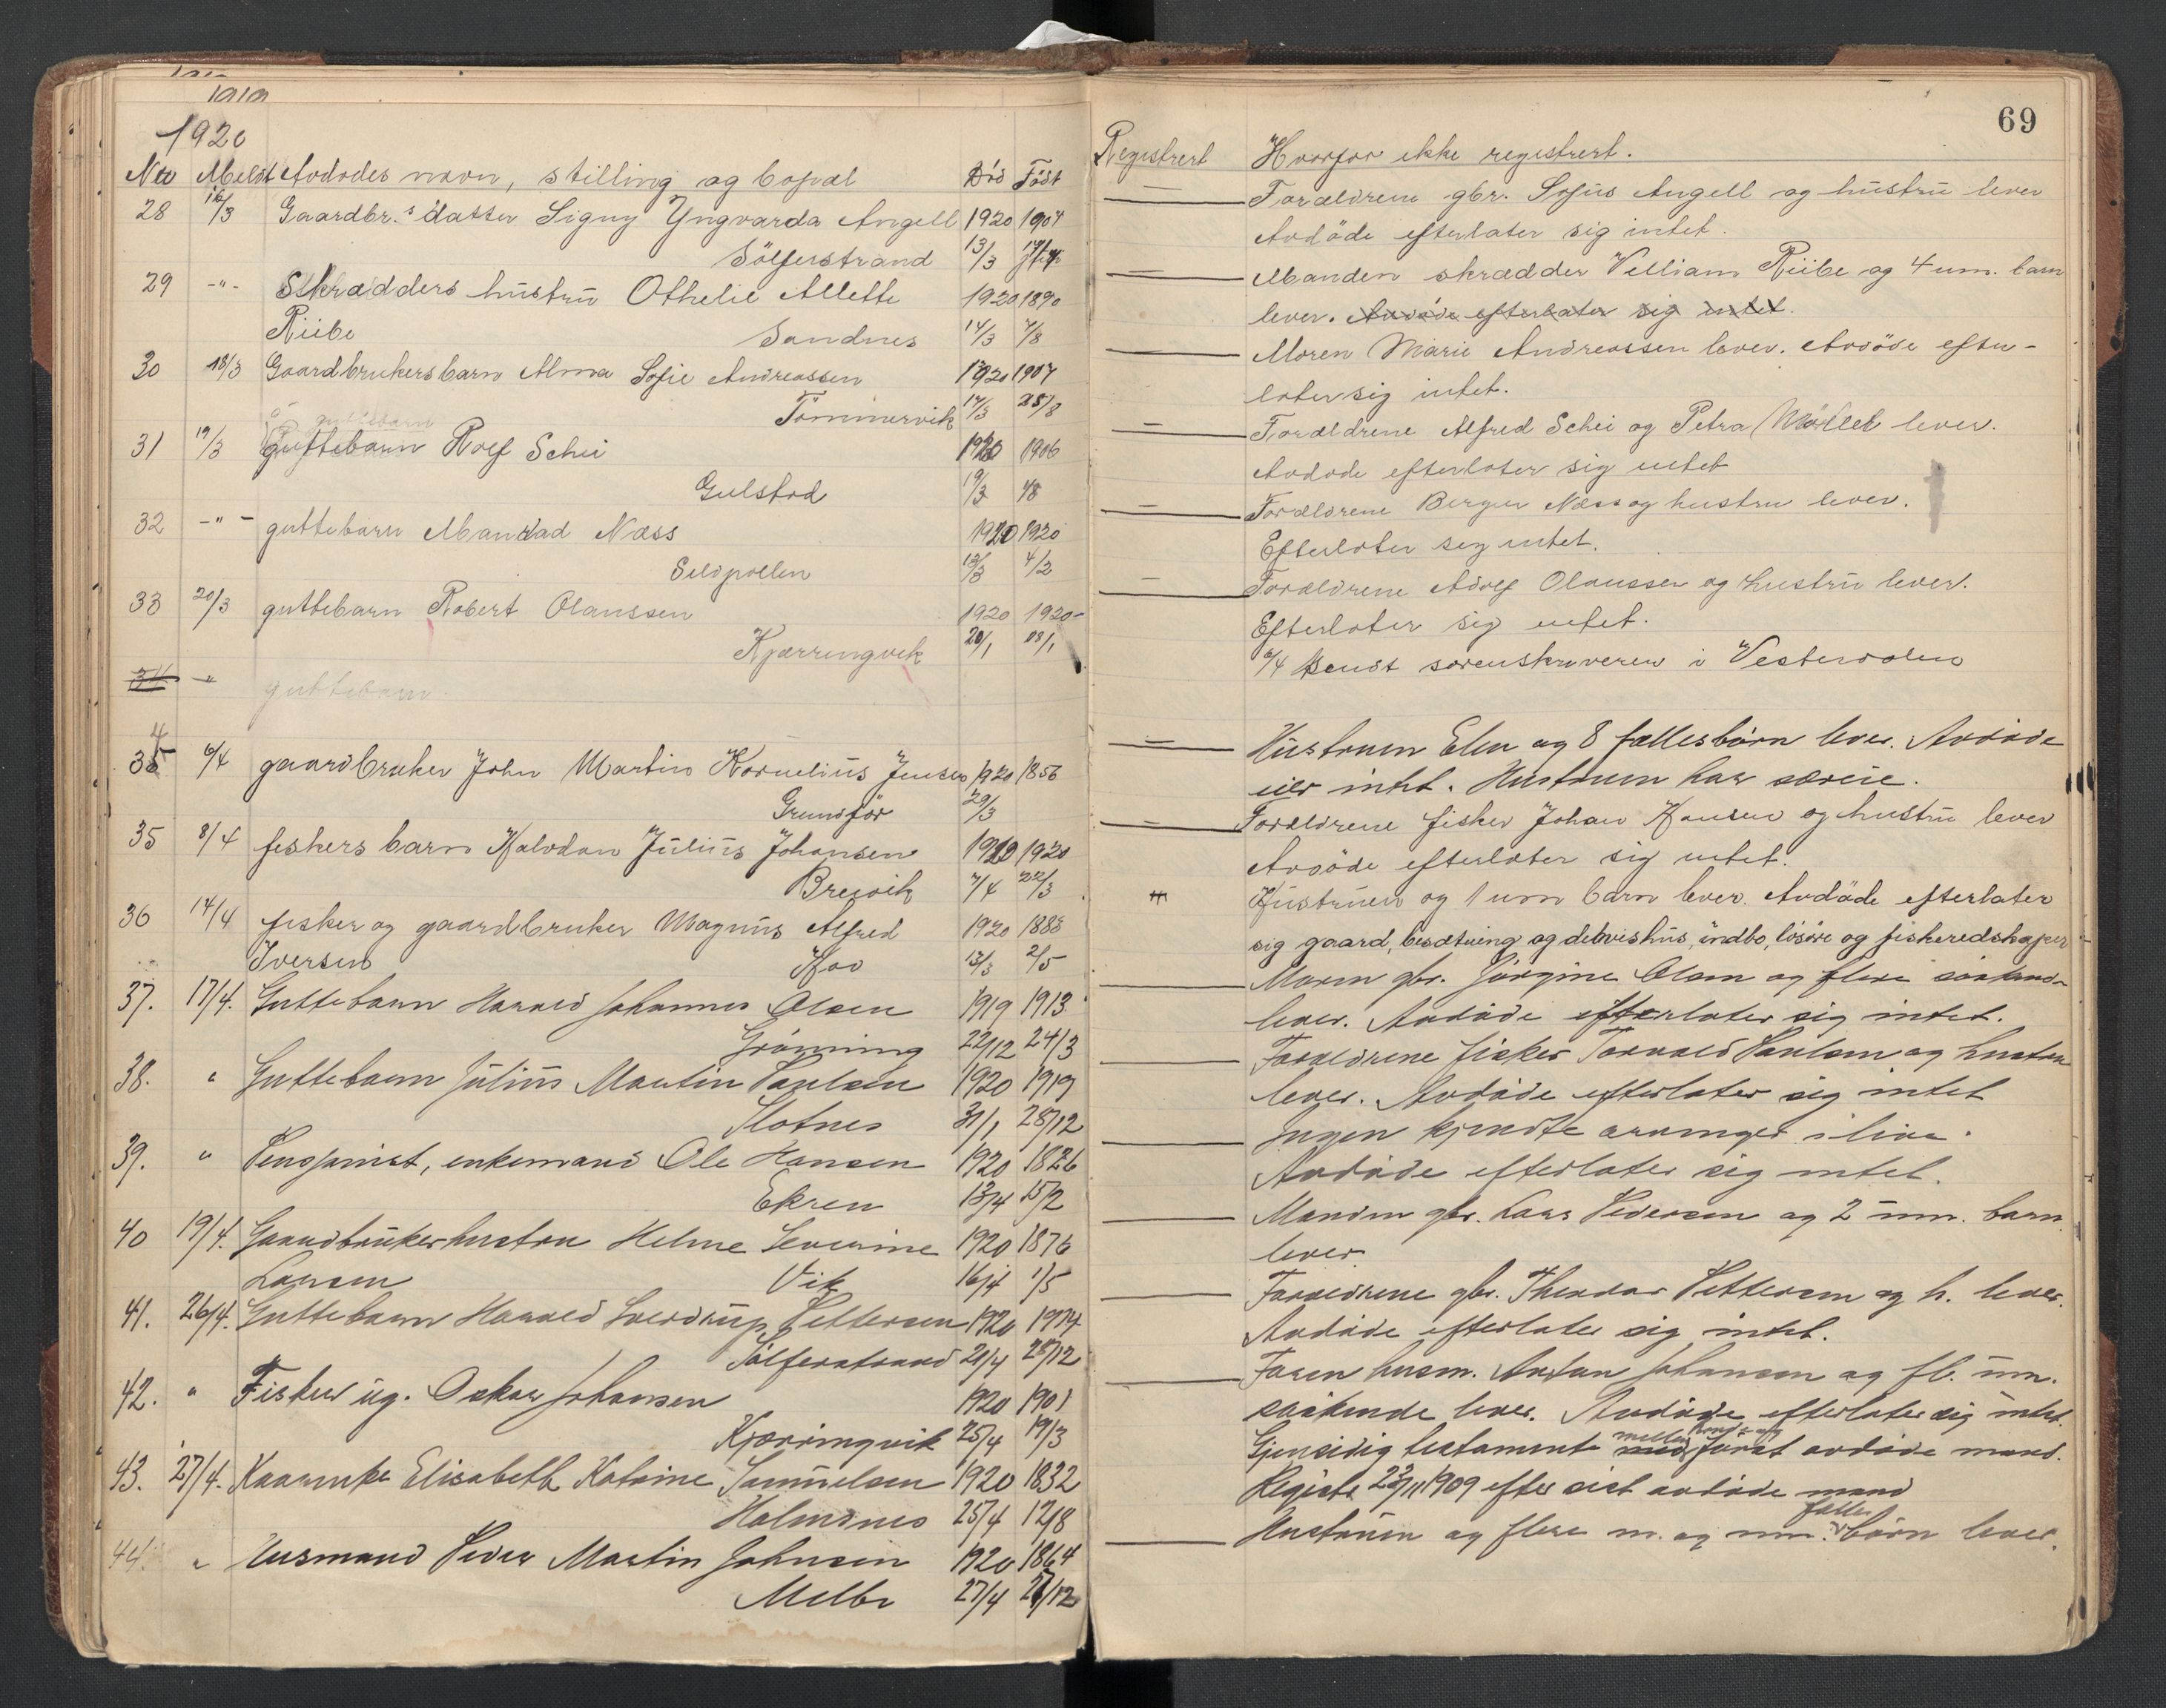 1919
1920
No Meldt Avdødes navn, stilling og bopæl Død Født
28 16/3 Gaardbr.s datter Signy Yngvarda Angell 1920 1904
Sölferstrand 13/3
29 -"- Skrædders hustru Othelie Allette 1920 1890
Riibe Sandnes 14/3 7/8
30 18/3 Gaardbrukersbarn Alma Sofie Andreassen 1920 1907
Tömmervik 17/3 25/8
31 19/3 guttebarn Rolf Schei 1920 1906
Gulstad 19/3 4/8
32 -"- guttebarn Mandrad Næss 1920 1920
Sildpollen 4/2
33 20/3 guttebarn Robert Olaussen 1920 1920
Kjærringvik 20/1
34 " guttebarn
34 6/4 gaardbruker John Martin Kornelius Jensen 1920 1856
Grunnför 29/3
35 8/4 fiskers barn Halvdan Julius Johansen 1920 1920
Breivik 7/4 22/3
36 14/4 fisker og gaardbruker Magnus Alfred 1920 1888
Iversen Hov 13/3 2/5
37. 17/4. Guttebarn Harald Johannes Olsen 1919 1913
Grønning 22/12 24/3
38. " Guttebarn Julius Martin Paulsen 1920 1919
Slotnes 31/1 28/12
39. " Pensjonist, enkemand Ole Hansen 1920 1826
Ekren 13/4 15/2
40 19/4. Gaardbrukerhustru Helene Severine 1920 1876
Larsen Vik 16/4 1/5
41. 26/4. Guttebarn Harald Sverdrup Pettersen 1920 1914
Sölferstrand 21/4 28/12
42. " Fisker ug. Oskar Johansen 1920 1901
Kjærringvik 25/4 19/3
43. 27/4. Kaarenke Elisabeth Katrine Samuelsen 1920 1832
Holmsnes 25/4 12/8
44. " Husmand Peder Martin Johnsen 1920 1864
Melbo 27/4 27/12
69
Registrert Hvorfor ikke registrert.
— Forældrene gbr. Sofus Angell og hustru lever
Avdöde efterlater sig intet.
— Manden skrædder Villiam Riibe og 4 um. barn
lever. Avdöde efterlater sig intet.
— Moren Marie Andreassen lever. Avdöde efter-
later sig intet.
— Forældrene Alfred Schei og Petra Möller lever.
Avdøde efterlater sig intet
— Forældrene Berger Næss og hustru lever.
Efterlater sig intet.
— Forældrene Adolf Olaussen og hustru lever.
Efterlater sig intet.
6/4 Sendt sorenskriveren i Vesteraalen
— Hustruen Elen og 8 fællesbörn lever. Avdöde
eier intet. Hustruen har særeie.
— Forældrene fisker Johan Hansen og hustru lever
Avdöde efterlater sig intet.
Hustruen og 1 um barn lever. Avdöde efterlater
sig gaard, besætning og delvishus, indbo, lösöre og fiskeredskaper
Moren gbr. Jörgine Olsen og flere söskend-
lever. Avdöde efterlater sig intet.
Forældrene fisker Torvald Paulsen og hustru
lever. Avdöde efterlater sig intet
Ingen kjendte arvinger i live.
Avdöde efterlater sig intet.
Manden gbr. Lars Pedersen og 2 um. barn
lever.
Forældrene gbr. Theodor Pettersen og h. lever.
Avdöde efterlater sig intet.
Faren husm. Anton Johansen og fl. um.
söskende lever. Avdöde efterlater sig intet.
Gjensidig testamente mellem hende og först avdöde mand.
Registr 23/11 1909 efter sist avdöde mand
Hustruen og flere m. og um. fælles börn lever.